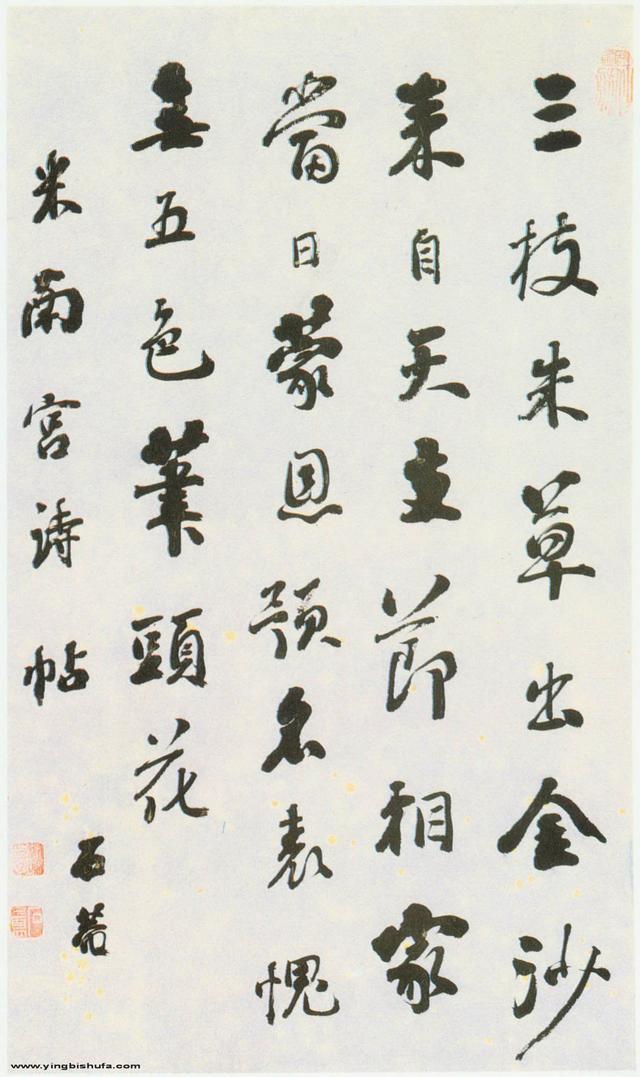 三枝朱草出金沙
来自天支節相家
當日蒙恩預名表愧
無五色筆頭花
米南宮詩帖
石菴
www.yingbishufa.com